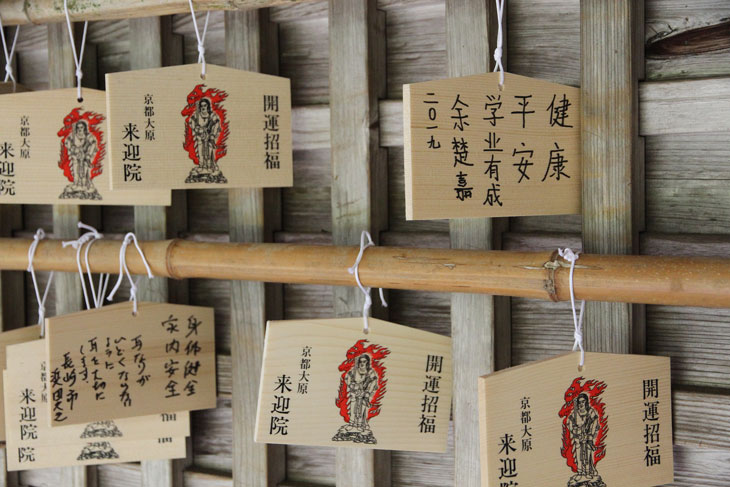 開運招福
京都大原
来迎院
健康
平安
学业有成
余楚嘉
二〇一九
原
来迎院
身体健全
家内安全
耳なりが
ひどくならない
ように
耳を大切に
します
長崎市
開運招福
京都大原
来迎院
開運招福
京都大原
来迎院
来迎院